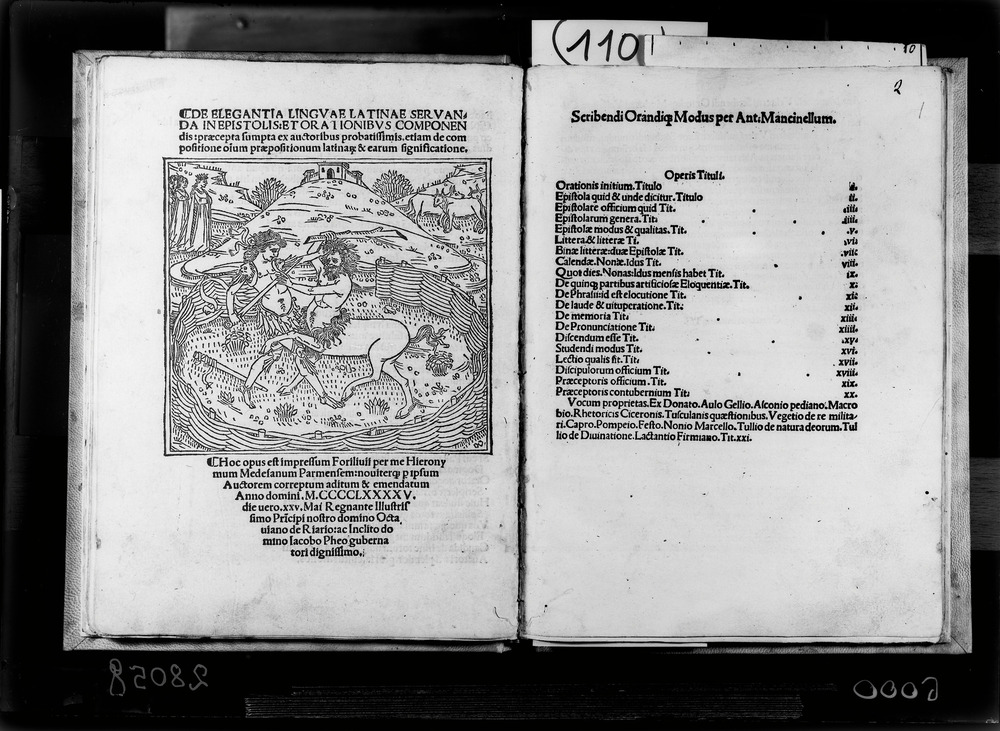 (110)
10
2
⁋DE ELEGANTIA LINGVAE LATINAE SERVAN/
DA IN EPISTOLIS: ET ORATIONIBVS COMPONEN
dis: præcepta sumpta ex auctoribus probatissimis. etiam de com
positione oium præpositionum latinaꝝ & earum significatione.
⁋Hoc opus est impressum Foriliuii per me Hierony
mum Medesanum Parmensem: nouiterqꝫ p ipsum
Auctorem correptum aditum & emendatum
Anno domini. M.CCCCLXXXXV.
die uero. xxv. Mai Regnante Illustris
simo Prīcipi nostro domino Octa
uiano de Riario: ac Inclito do
mino Iacobo Pheo guberna
tori dignissimo.
Scribendi Orandiqꝫ Modus per Ant: Mancinellum.
Operis Tituli.
Orationis initium. Titulo
Epistola quid & unde dicitur. Titulo ii.
Epistolare officium quid Tit. iii.
Epistolarum genera. Tit. iiii.
Epistolæ modus & qualitas. Tit. .v.
Littera & litteræ Ti. .vi.
Binæ litteræ: duæ Epistolæ Tit. .vii.
Calendæ. Nonæ. Idus Tit. viii.
Quot dies. Nonas: Idus mensis habet Tit. ix.
De quinqꝫ partibus artificiosæ Eloquentiæ. Tit. x.
De Phrasi: id est elocutione Tit. xi.
De laude & uituperatione. Tit. xii.
De memoria Tit. xiii.
De Pronunciatione Tit. xiiii.
Discendum esse Tit. .xv.
Studendi modus Tit. xvi.
Lectio qualis sit. Tit. .xvii.
Discipulorum officium Tit. xviii.
Præceptoris officium. Tit. xix.
Præceptoris contubernium Tit. xx.
Vocum proprietas. Ex Donato. Aulo Gellio. Asconio pediano. Macro
bio. Rhetoricis Ciceronis. Tusculanis quæstionibus. Vegetio de re milita
ri. Capro. Pompeio. Festo. Nonio Marcello. Tullio de natura deorum. Tul
lio de Diuinatione. Lactantio Firmiano. Tit. xxi.